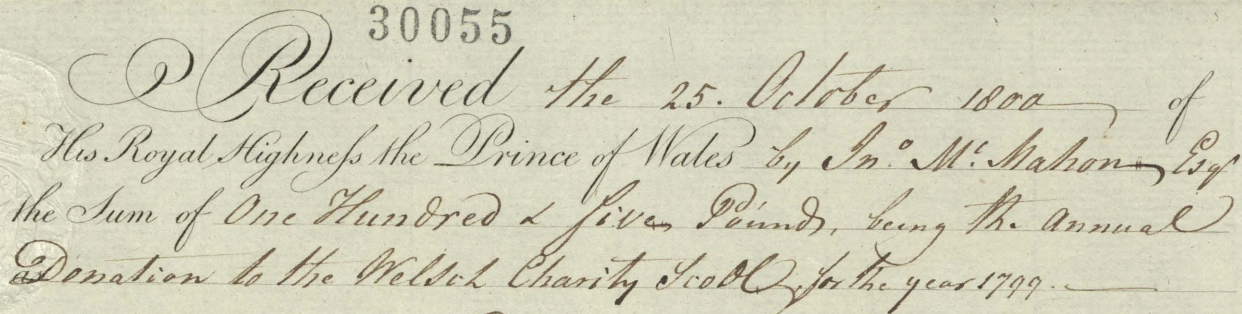 30055
Received the 25. October 1800 of
His Royal Highneſs the Prince of Wales by Jno. Mc. Mahon Esqr
the Sum of One Hundred & five Pounds, being the Annual
Donation to the Welsch Charity Scool, for the year 1799.